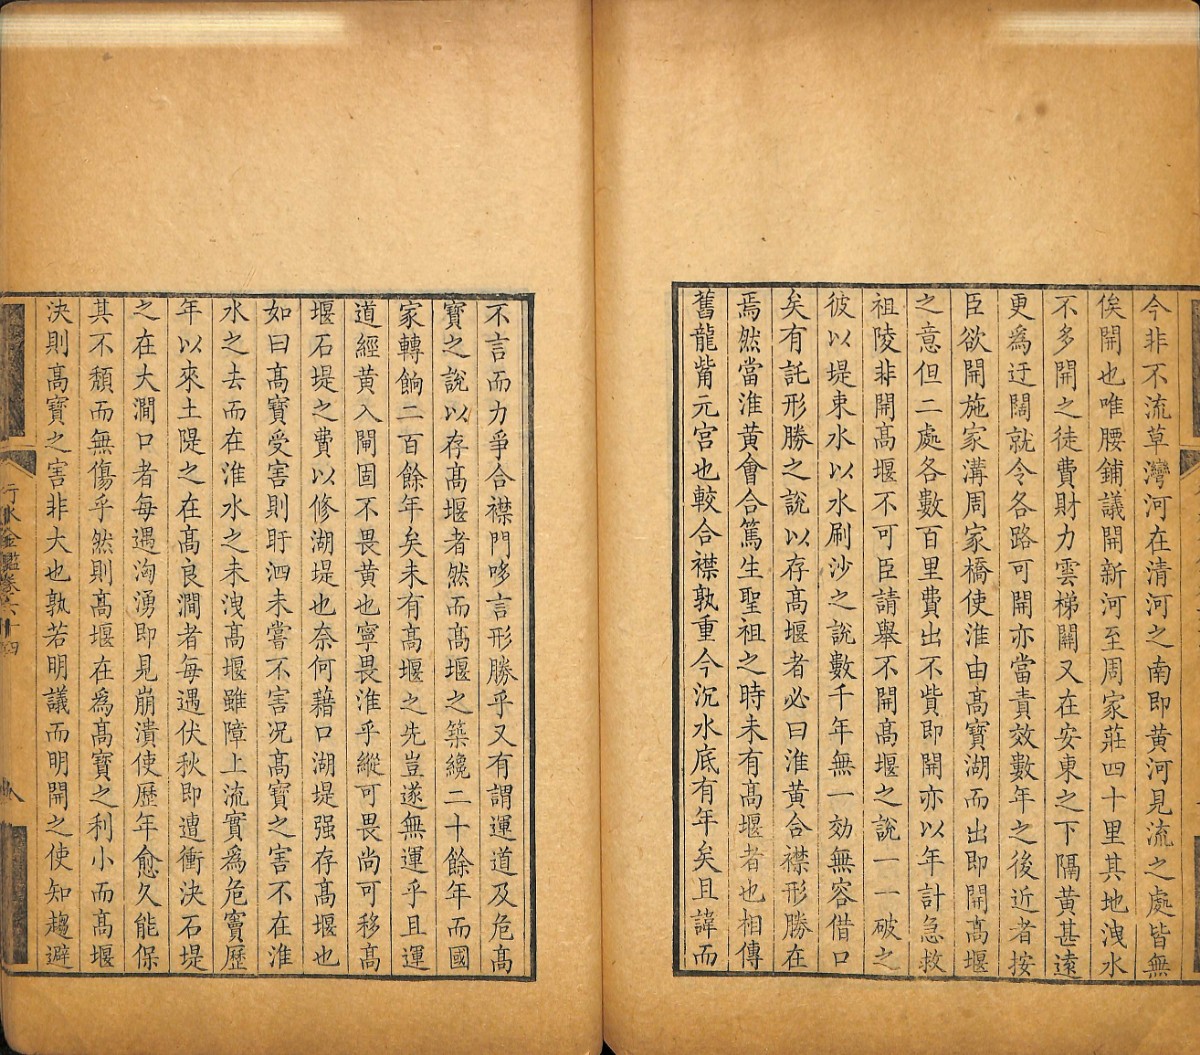 今非不流草灣河在清河之南即黄河見流之處皆無
俟開也唯腰鋪議開新河至周家莊四十里其地洩水
不多開之徒費財力雲梯關又在安東之下隔黄甚遠
更爲迂闊就令各路可開亦當責效數年之後近者按
臣欲開施家溝周家橋使淮由髙寶湖而出即開髙堰
之意但二處各數百里費出不貲即開亦以年計急救
祖陵非開髙堰不可臣請舉不開髙堰之說一一破之
彼以堤束水以水刷沙之說數千年無一効無容借口
矣有託形勝之說以存髙堰者必曰淮黄合襟形勝在
焉然當淮黄會合篤生聖祖之時未有髙堰者也相傳
舊龍觜元宫也較合襟孰重今沉水底有年矣且諱而
不言而力爭合襟門哆言形勝乎又有謂運道及危髙
寶之說以存髙堰者然而髙堰之築纔二十餘年而國
家轉餉二百餘年矣未有髙堰之先豈遂無運乎且運
道經黄入閘固不畏黄也寧畏淮乎縱可畏尚可移髙
堰石堤之費以修湖堤也奈何藉口湖堤强存髙堰也
如曰髙寶受害則盱泗未嘗不害况髙寶之害不在淮
水之去而在淮水之未洩髙堰雖障上流實爲危竇歷
年以來土隄之在髙良澗者每遇伏秋即遭衝決石堤
之在大澗口者每遇洶湧即見崩潰使歷年愈久能保
其不頹而無傷乎然則髙堰在爲髙寶之利小而髙堰
決則髙寶之害非大也孰若明議而明開之使知趨避
行水金鑑卷六十四